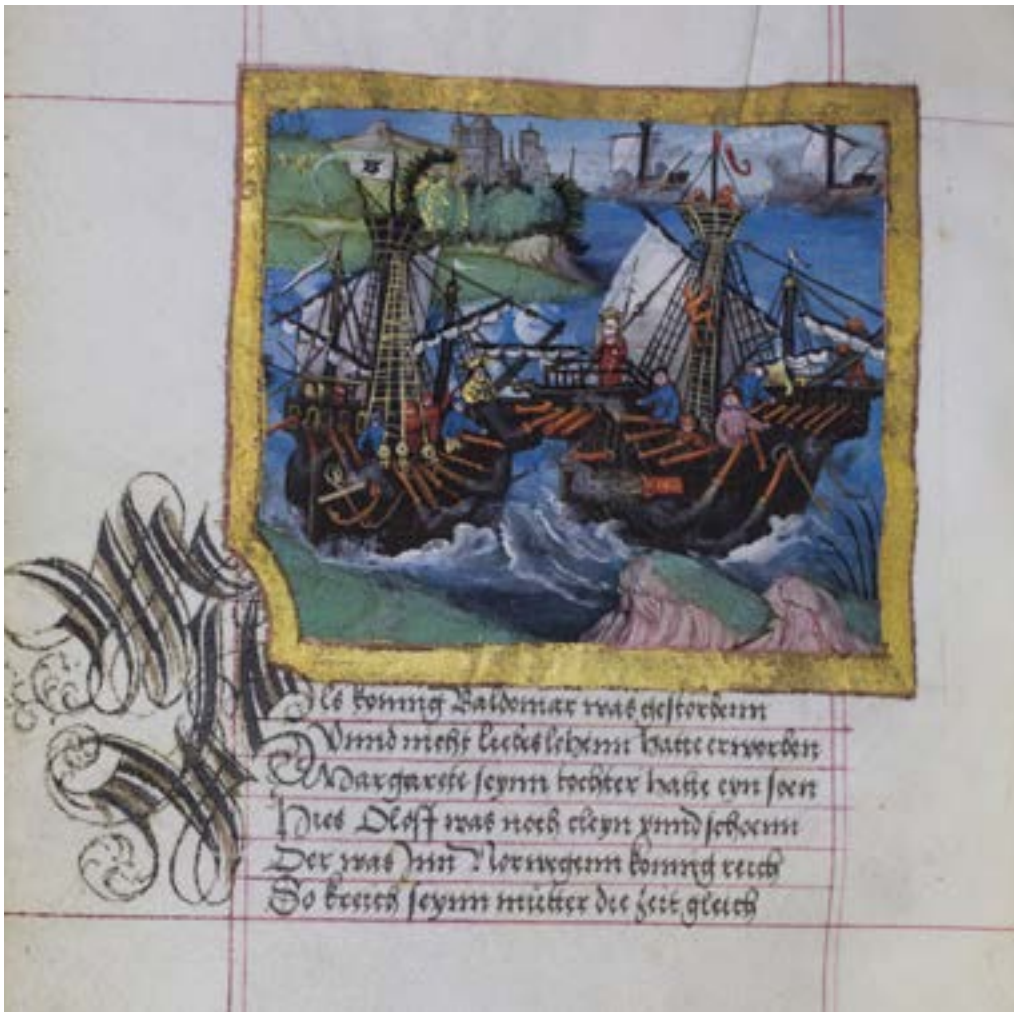 Als koning Waldomar was gestorbenn
Vnnd mehr liebeslehenn hatte erworben
Margarete seynn tochter hatte eyn soen
Hies Oloff was noch cleyn vnnd schoenn
Der was Jnn Norwegenn koning reich
So kreich seynn mutter die zeit gleich